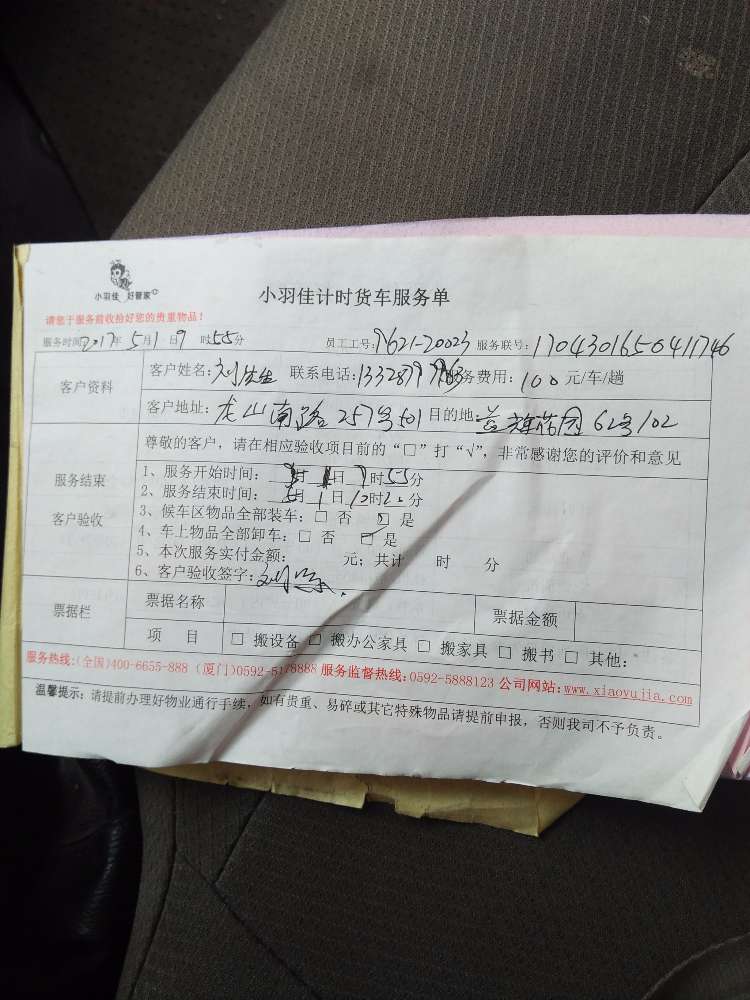 小羽佳 好管家
小羽佳计时货车服务单
请您于服务前收拾好您的贵重物品！
服务时间2017年5月1日9时55分 员工工号:9621-20023 服务联号:1704301650411746
客户资料 客户姓名:刘先生 联系电话: 服务费用:100元/车/趟
客户地址:龙山南路257号501 目的地: 花园62号102
尊敬的客户，请在相应验收项目前的“□”打“√”，非常感谢您的评价和意见
服务结束
客户验收
1、服务开始时间: 月1日9时55分
2、服务结束时间:5月1日12时20分
3、候车区物品全部装车:□ 否 □ 是
4、车上物品全部卸车:□ 否 □ 是
5、本次服务实付金额: 元;共计 时 分
6、客户验收签字:刘
票据栏 票据名称 票据金额
项 目 □ 搬设备 □ 搬办公家具 □ 搬家具 □ 搬书 □ 其他:
服务热线:(全国)400-6655-888 (厦门)0592-5178888 服务监督热线:0592-5888123 公司网站:www.xiaoyujia.com
温馨提示:请提前办理好物业通行手续，如有贵重、易碎或其它特殊物品请提前申报，否则我司不予负责。